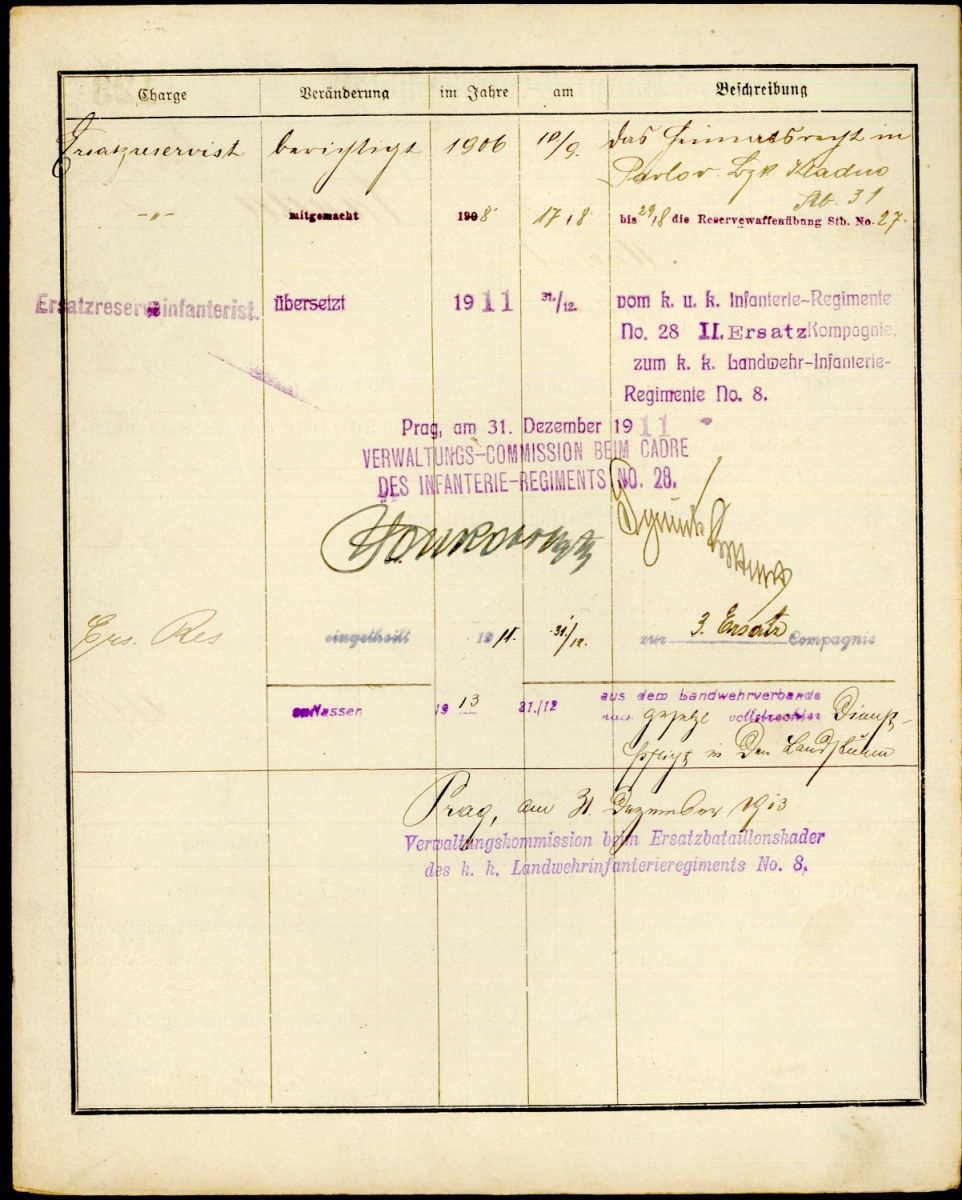 Charge Veränderung im Jahre am Beschreibung
Ersatzreservist berichtigt 1906 10/9. das Heimatsrecht in
Pavlov. Bzk Kladno
Stb. 31
-"- mitgemacht 1908 17/8 bis 29/8 die Reservewaffenübung Stb. No. 27.
Ersatzreserveinfanterist. übersetzt 1911 31./12. vom k. u. k. Infanterie-Regimente
No. 28 II. Ersatz Kompagnie.
zum k. k. Landwehr-Infanterie-
Regimente No. 8.
Prag, am 31. Dezember 1911
VERWALTUNGS-COMMISSION BEIM CADRE
DES INFANTERIE-REGIMENTS NO. 28.
Ers. Res eingetheilt 1911. 31./12. zur 3. Ersatz Compagnie
entlassen 1913 31./12 aus dem Landwehrverbande
nach gesetzl vollstreckter Dienst-
pflicht in den Landsturm
Prag, am 31. Dezember 1913
Verwaltungskommission beim Ersatzbataillonskader
des k. k. Landwehrinfanterieregiments No. 8.